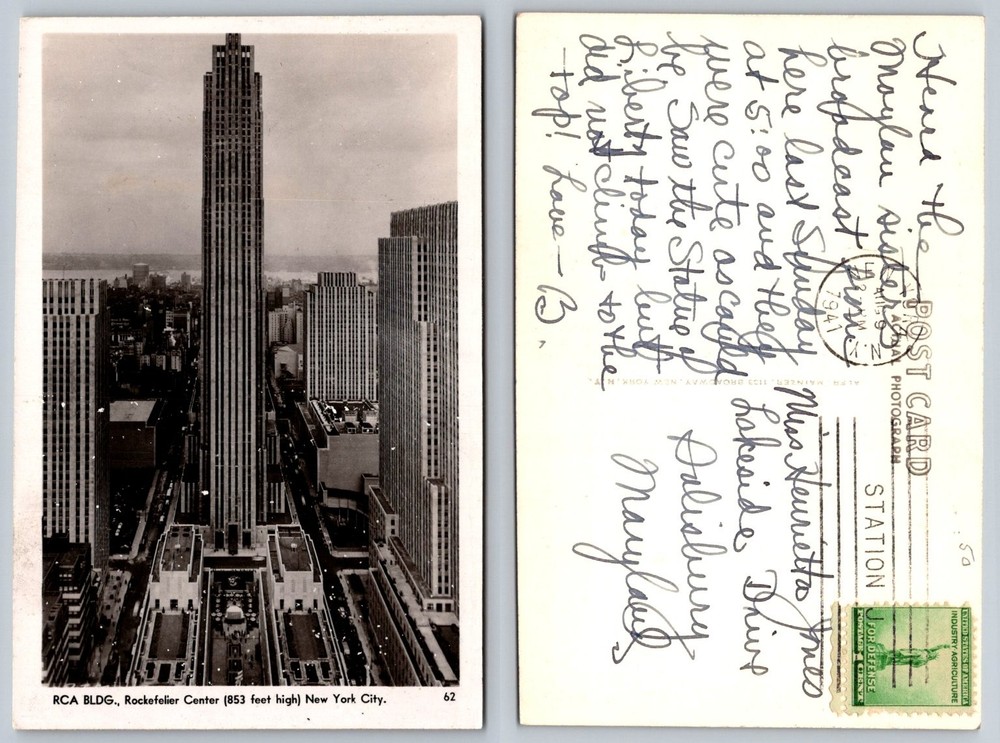 RCA BLDG., Rockefeller Center (853 feet high) New York City. 62
Heard the
Moylan sisters
broadcast from
here last Sunday
at 5:00 and they
were cute as could
be. Saw the Statue of
Liberty today but
did not climb to the
top! Love — B
POST CARD
PHOTOGRAPH
ALFR. MAINZER, 1123 BROADWAY, NEW YORK, N.Y.
1941
STATION
Miss Henrietta Jones
Lakeside Drive
Salisbury
Maryland
.50
UNITED STATES OF AMERICA
INDUSTRY AGRICULTURE
FOR DEFENSE
POSTAGE 1 CENT